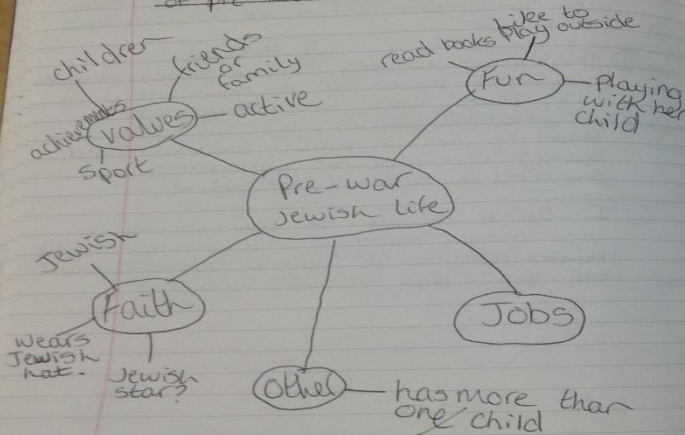 of pre
children
friends
or
family
achievements
values
active
sport
read books
Like to
play outside
Fun
playing
with her
child
Pre-war
Jewish Life
Jewish
Faith
wears
Jewish
hat.
Jewish
star?
Other
has more than
one child
Jobs